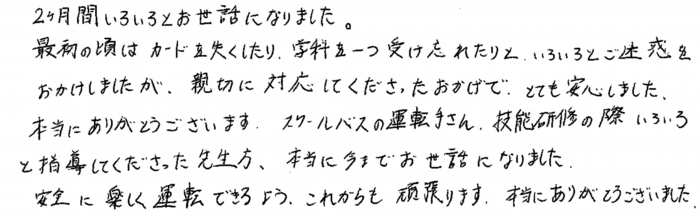 2ヶ月間いろいろとお世話になりました。
最初の頃はカードを失くしたり、学科を一つ受け忘れたりと、いろいろとご迷惑を
おかけしましたが、親切に対応してくださったおかげで、とても安心しました。
本当にありがとうございます。スクールバスの運転手さん、技能研修の際いろいろ
と指導してくださった先生方、本当に今までお世話になりました。
安全に楽しく運転できるよう、これからも頑張ります。本当にありがとうございました。